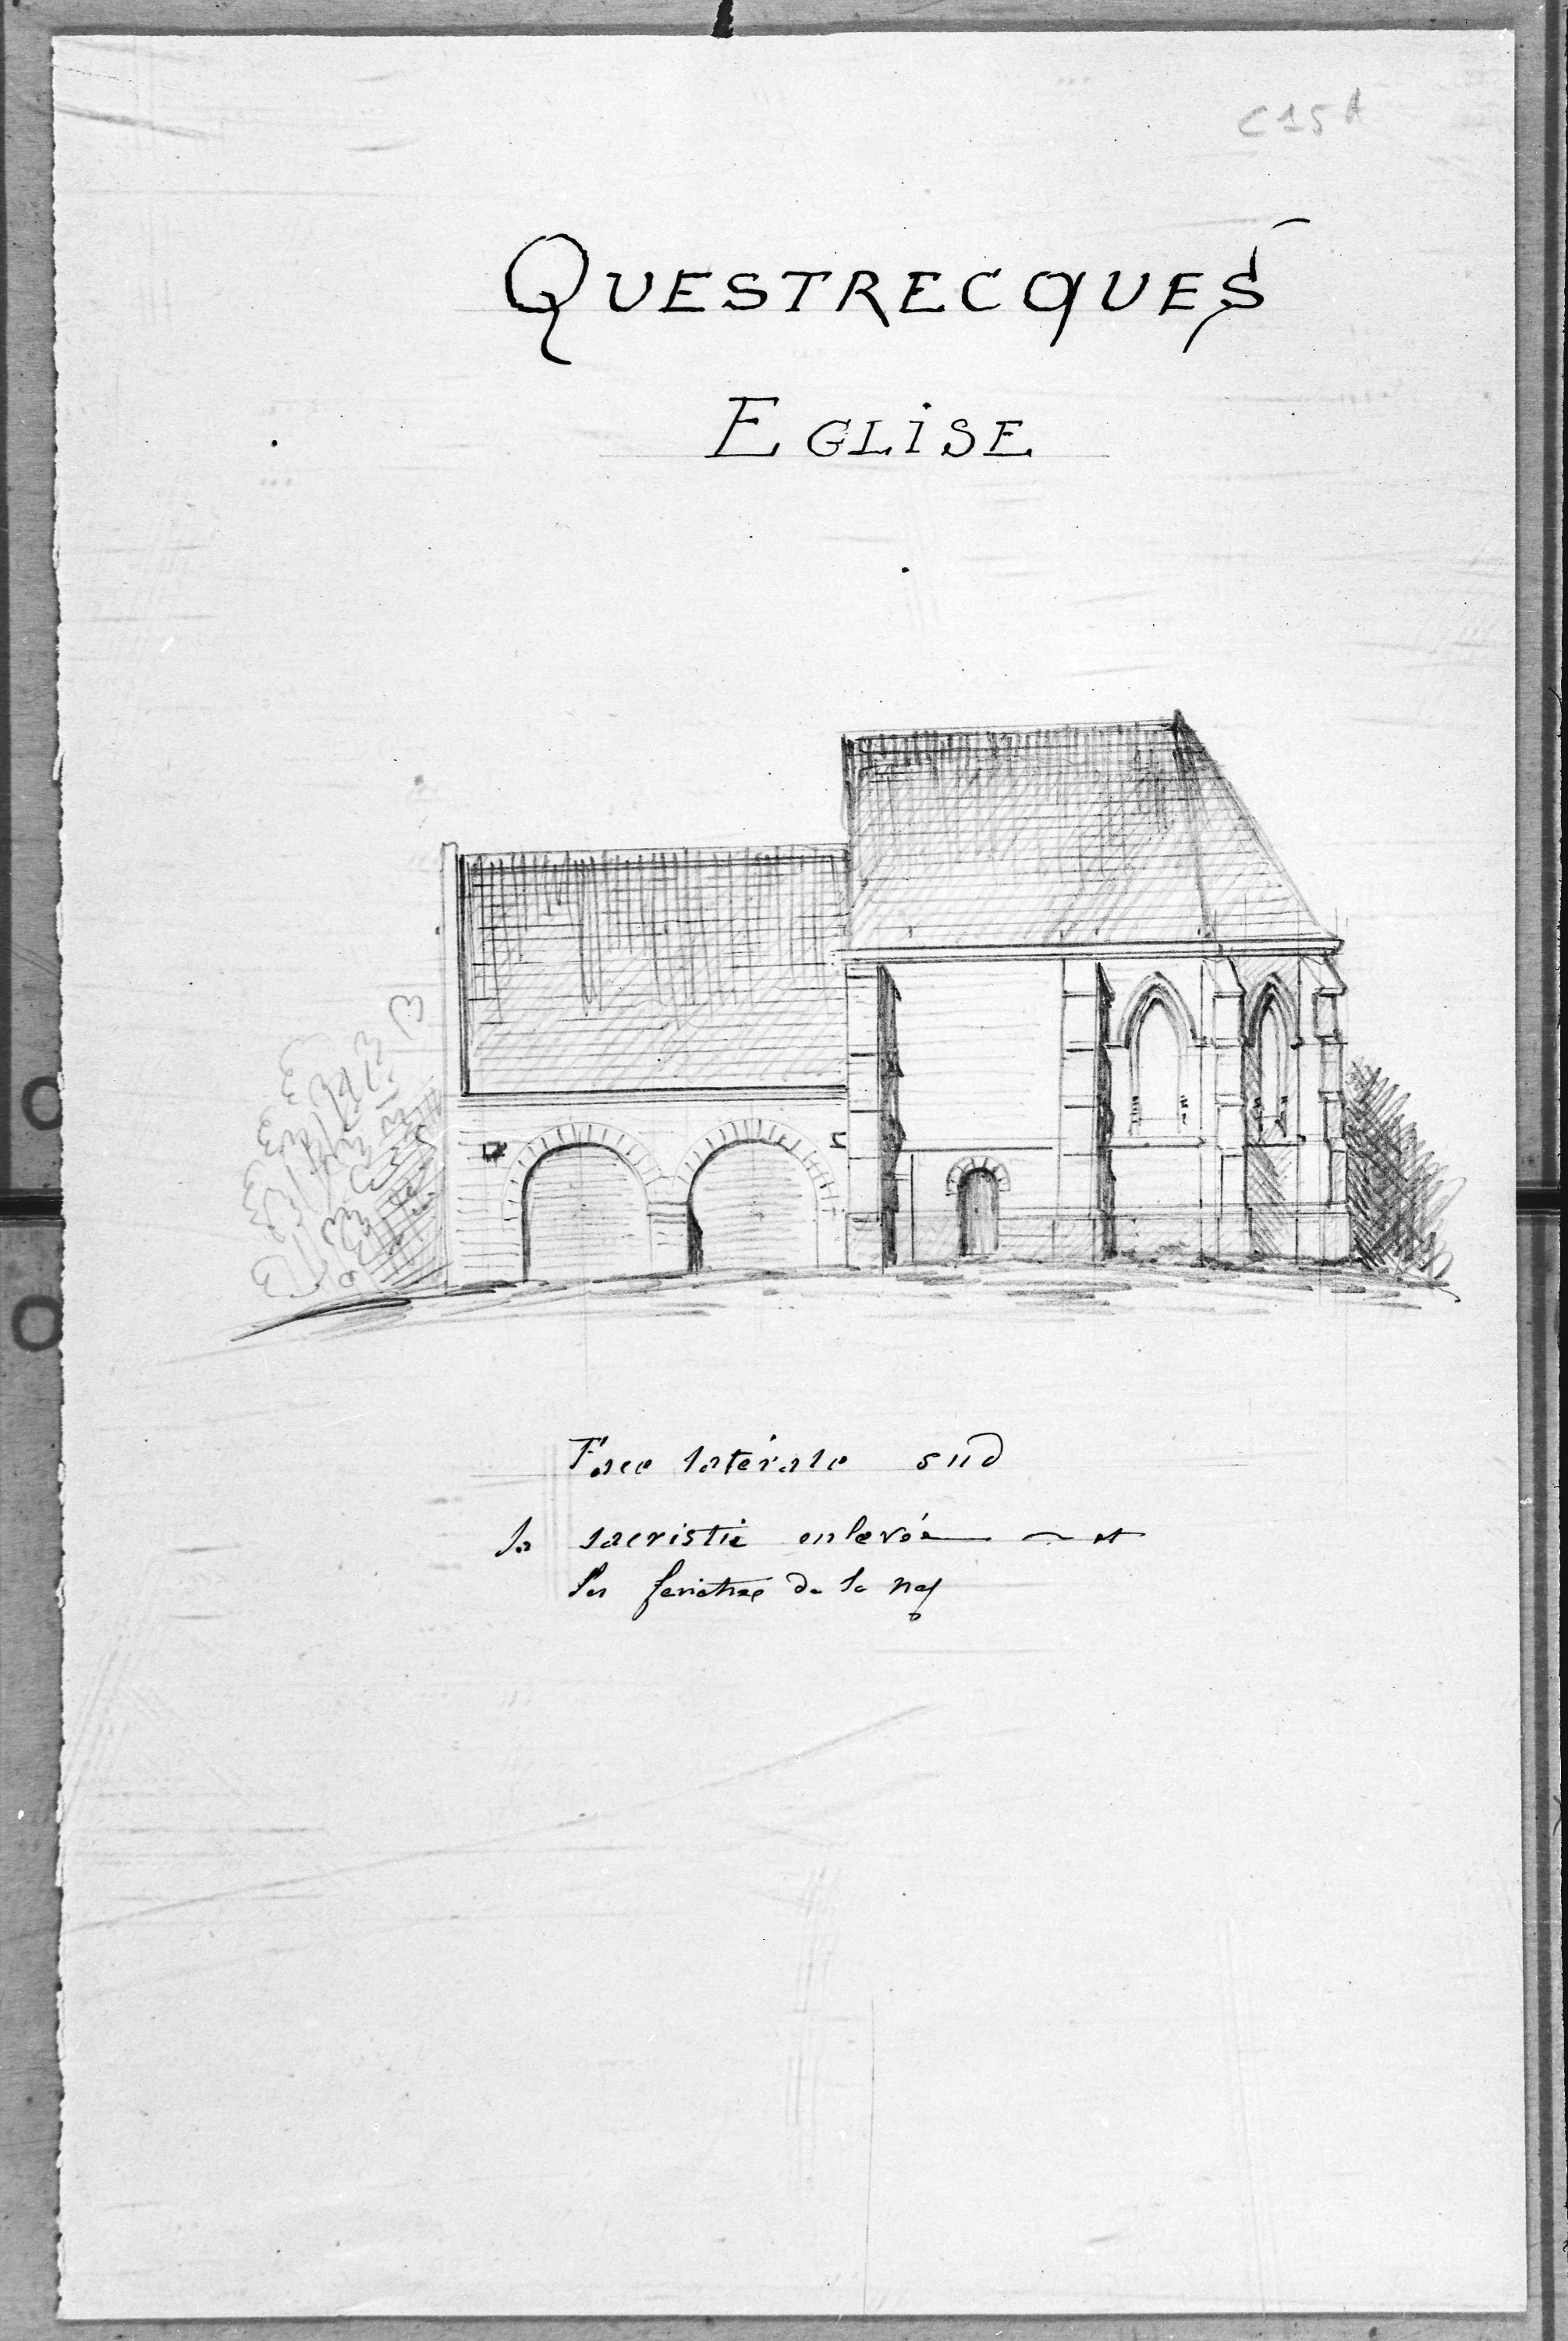 C15 A
QUESTRECQUES
EGLISE
Face latérale sud
la sacristie enlevée et
les fenêtres de la nef